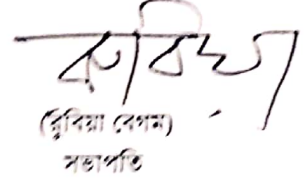 রুবিয়া
(রুবিয়া বেগম)
সভাপতি